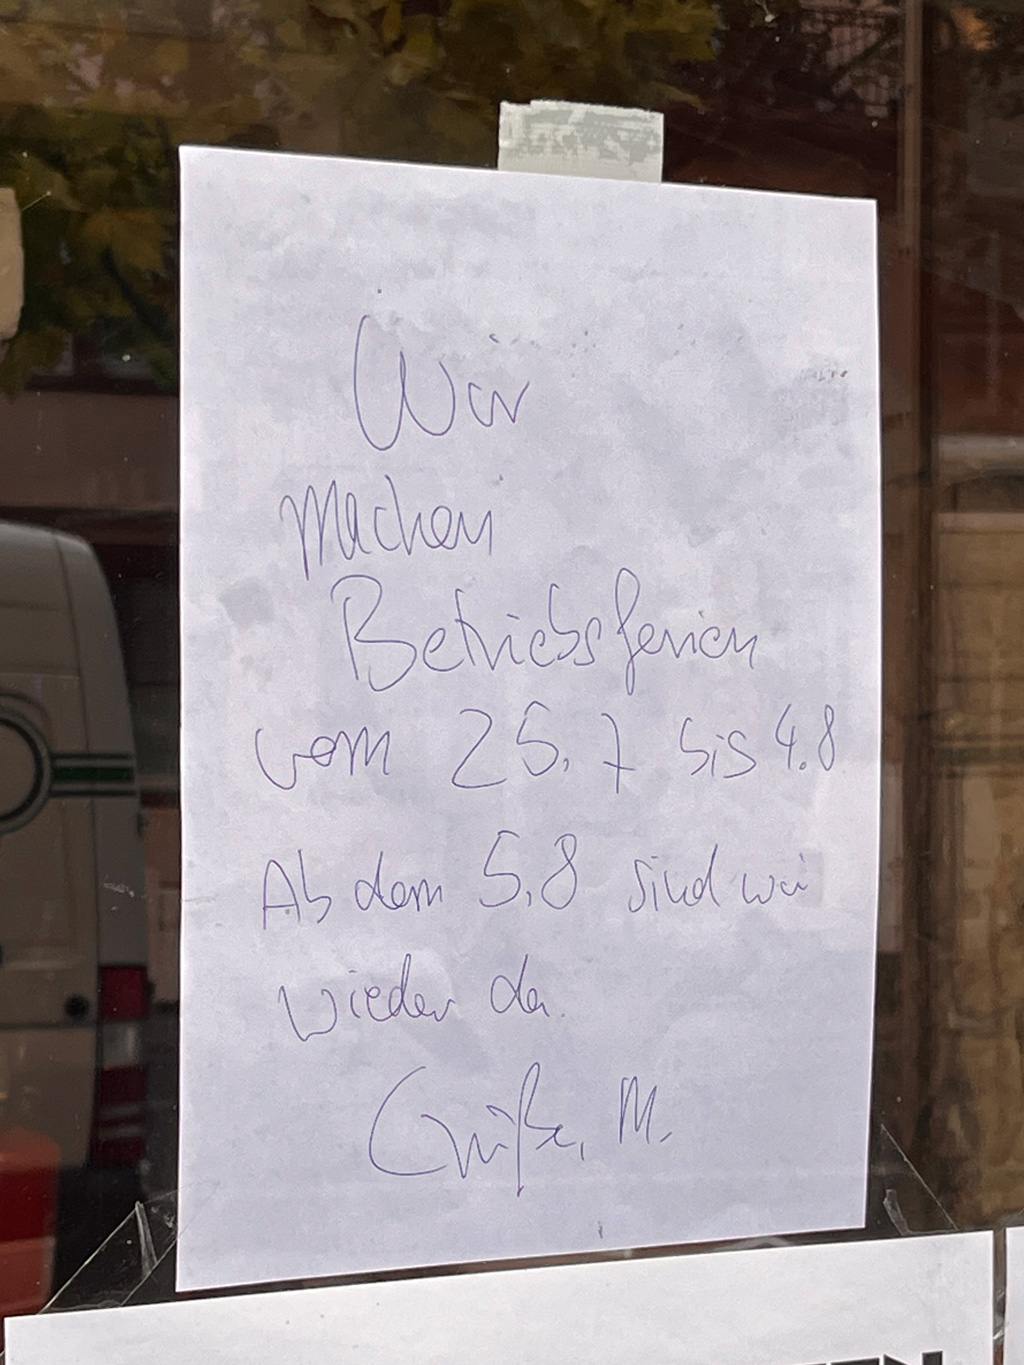 Wir
machen
Betriebsferien
vom 25.7 bis 4.8
Ab dem 5.8 sind wir
wieder da.
Grüße, M.